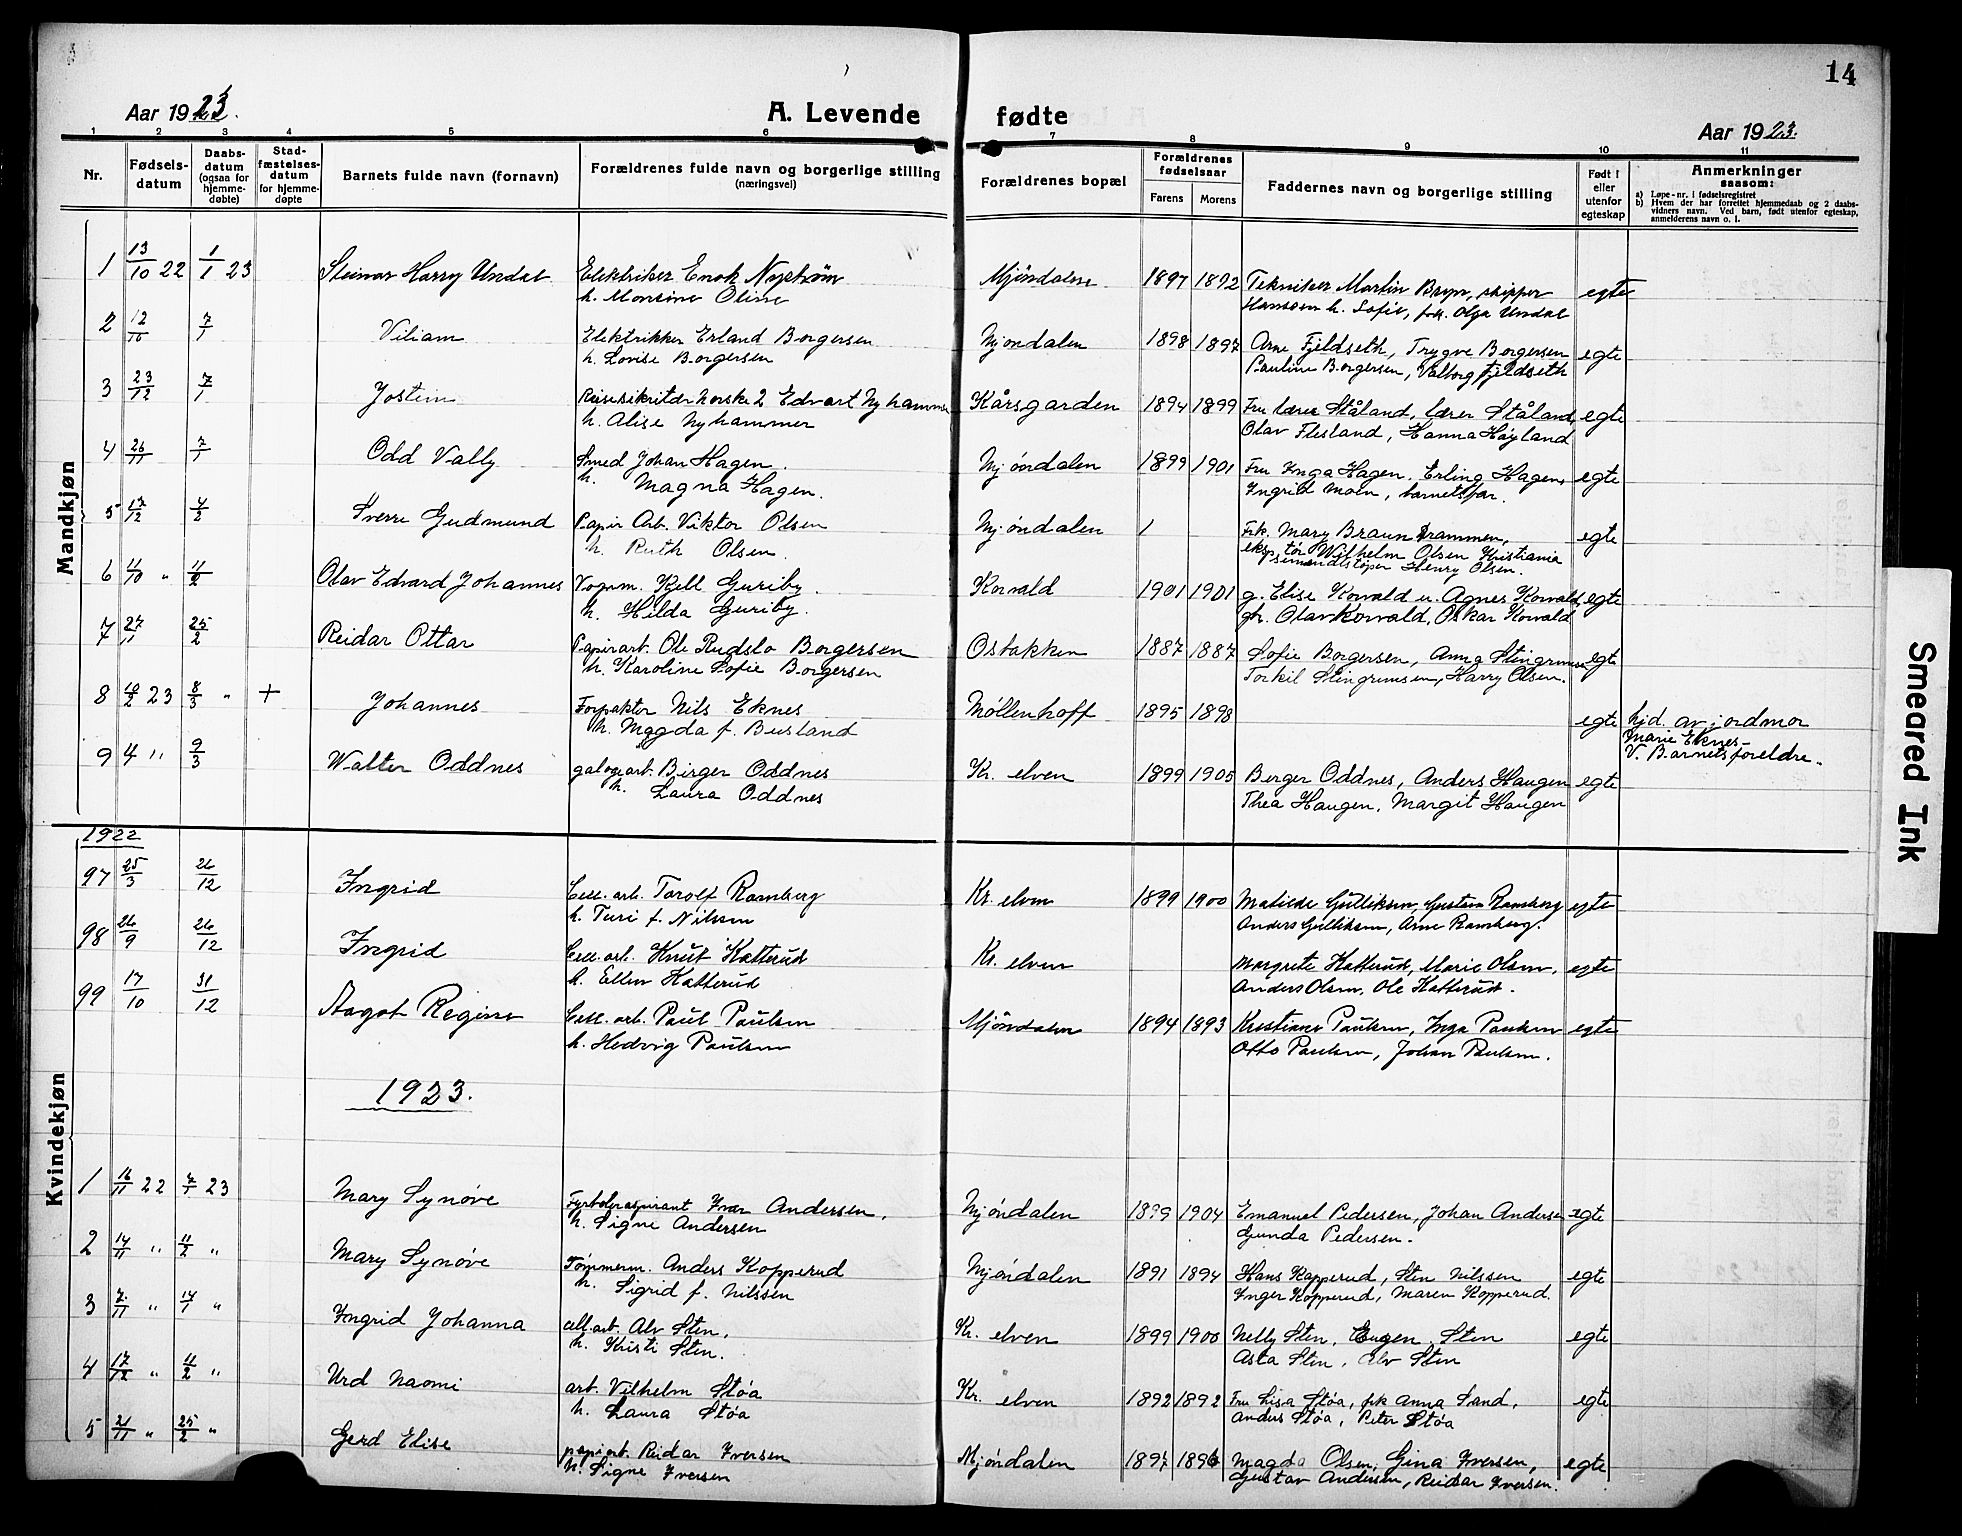 14
Aar 1923.
A. Levende fødte
Aar 1923.
1 2 3 4 5 6 7 8 9 10 11
Nr.
Fødsels-
datum
Daabs-
datum
(ogsaa for
hjemme-
døbte)
Stad-
fæstelses-
datum
for hjemme-
døpte
Barnets fulde navn (fornavn)
Forældrenes fulde navn og borgerlige stilling
(næringsvei)
Forældrenes bopæl
Forældrenes
fødselsaar
Farens Morens
Faddernes navn og borgerlige stilling
Født i
eller
utenfor
egteskap
Anmerkninger
saasom:
a) Løpe-nr. i fødselsregistret
b) Hvem der har forrettet hjemmedaab og 2 daabs-
vidners navn. Ved barn, født utenfor egteskap,
anmelderens navn o. l.
Mandkjøn
1 13/10 22 1/1 23 Steinar Harry Undal Elektriker Enok Nystrøm Mjöndalen 1897 1892 Tekniker Martin Bryn, skipper egte
h. Monsine Oline Hanssen h. Sofie, frk. Olga Undal
2 12/10 7/1 Viliam Elektrikker Erland Borgersen Mjøndalen 1898 1897 Arne Fjeldseth, Trygve Borgersen egte
h. Lovise Borgersen Pauline Borgersen, Valborg Fjeldseth
3 23/12 7/1 Jostein Reisesikritær Norske 2 Edvart Nyhammer Kårsgarden 1894 1899 Fru lærer Ståland, lærer Ståland, egte
h. Alise Nyhammer Olav Flesland, Hanna Høyland
4 26/11 7/1 Odd Vally Smed Johan Hagen. Mjøndalen 1899 1901 Fru Inga Hagen. Erling Hagen, egte
h. Magna Hagen. Ingrid Moen, barnets far.
5 17/12 4/2 Sverre Gudmund Papir Arb. Viktor Olsen Mjøndalen 1 Frk. Mary Braun Drammen, egte
h. Ruth Olsen. eksp. tør Wilhelm Olsen Kristiania
sementstøper Henry Olsen.
6 11/10 " 11/2 Olav Edvard Johannes Vognm. Kjell Guriby. Korvald 1901 1901 g. Elise Korvald u. Agnes Korvald, egte
h. Hilda Guriby. gh. Olav Korvald, Oskar Korvald
7 27/11 25/2 Reidar Ottar Papirarb. Ole Rudslo Borgersen Osbakken 1887 1887 Sofie Borgersen, Anna Stingrimsen egte
h. Karoline Sofie Borgersen Torkil Stingrimsen, Harry Olsen.
8 10/2 23 8/3 " + Johannes Forpakter Nils Eknes Møllenhoff 1895 1898 egte hjd. av jordmor
h. Magda f. Busland Marie Eknes
V. Barnets foreldre.
9 4 " 9/3 Walter Oddnes Birger Oddnes Kr. elven 1899 1905 Berger Oddnes, Anders Haugen egte
h. Laura Oddnes Thea Haugen, Margit Haugen
Kvindekjøn
1922
97 25/3 26/12 Ingrid Cell. arb. Torolf Ramberg Kr. elven 1899 1900 Matilde Gulliksen, Gustava Ramberg egte
h. Turi f. Nilsen Anders Gulliksen, Arne Ramberg.
98 26/9 26/12 Ingrid Cell. arb. Knut Katterud Kr. elven Margrete Katterud, Marie Olsen, egte
h. Ellen Katterud Anders Olsen, Ole Katterud.
99 17/10 31/12 Aagot Regine Cell. arb. Paul Paulsen Mjöndalen 1894 1893 Kristiane Paulsen, Inga Paulsen egte
h. Hedvig Paulsen Otto Paulsen, Johan Paulsen.
1923.
1 16/11 22 7/1 23 Mary Synøve Fyrbøteraspirant Ivar Andersen, Mjøndalen 1899 1904 Emanuel Pedersen, Johan Andersen egte
h. Signe Andersen Gunda Pedersen.
2 14/11 " 11/2 " Mary Synøve Tømmerm. Anders Kopperud Mjøndalen 1891 1894 Hans Kopperud, Sten Nilssen egte
h. Sigrid f. Nilssen Inger Kopperud, Maren Kopperud.
3 7/11 " 14/1 " Ingrid Johanna cell. arb. Alv Sten, Kr. elven 1899 1900 Nelly Sten, Eugen Sten egte
h. Kristi Sten. Asta Sten, Alv Sten
4 17/12 " 11/2 " Urd Naomi arb. Vilhelm Støa Kr. elven 1892 1892 Fru Lisa Støa, frk Anna Sand, egte
h. Laura Støa Anders Støa, Peter Støa
5 21/11 " 25/2 " Gerd Elise papirarb. Reidar Iversen Mjøndalen 1897 1896 Magda Olsen, Gina Iversen, egte
h. Signe Iversen Gustav Andersen, Reidar Iversen.
Smeared Ink